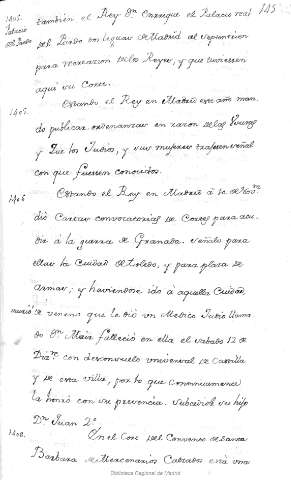 145
1405.
Palacio
del Pardo
tambien el Rey Dn Enrrique el Palacio real
del Pardo dos leguas de Madrid al
para recreacion de los Reyes, y que tuviessen
aqui su Corte.
1405.
Estando el Rey en Madrid este año man
do publicar ordenanzas en razon de las
y que los Judios, y sus mujeres traxesen señal
con que fuesen conocidos.
1406
Estando el Rey en Madrid á 1º de
dió Cartas convocatorias de Cortes para acu
dir á la guerra de Granada. Señaló para
ellas la Ciudad de Toledo, y para plaza de
armas; y haviendose ido á aquella Ciudad,
murió de veneno que le dió un Medico Judio llama
do Dn Mair falleció en ella el sabado 12 de
con desconsuelo universal de Castilla
y de esta villa, por lo que comunmente
la honró con su presencia. subcedióle su hijo
Dn Juan 2º
1408.
En el Coro del Convento de Santa
Barbara de Mercenarios Calzados está una
Biblioteca Regional de Madrid